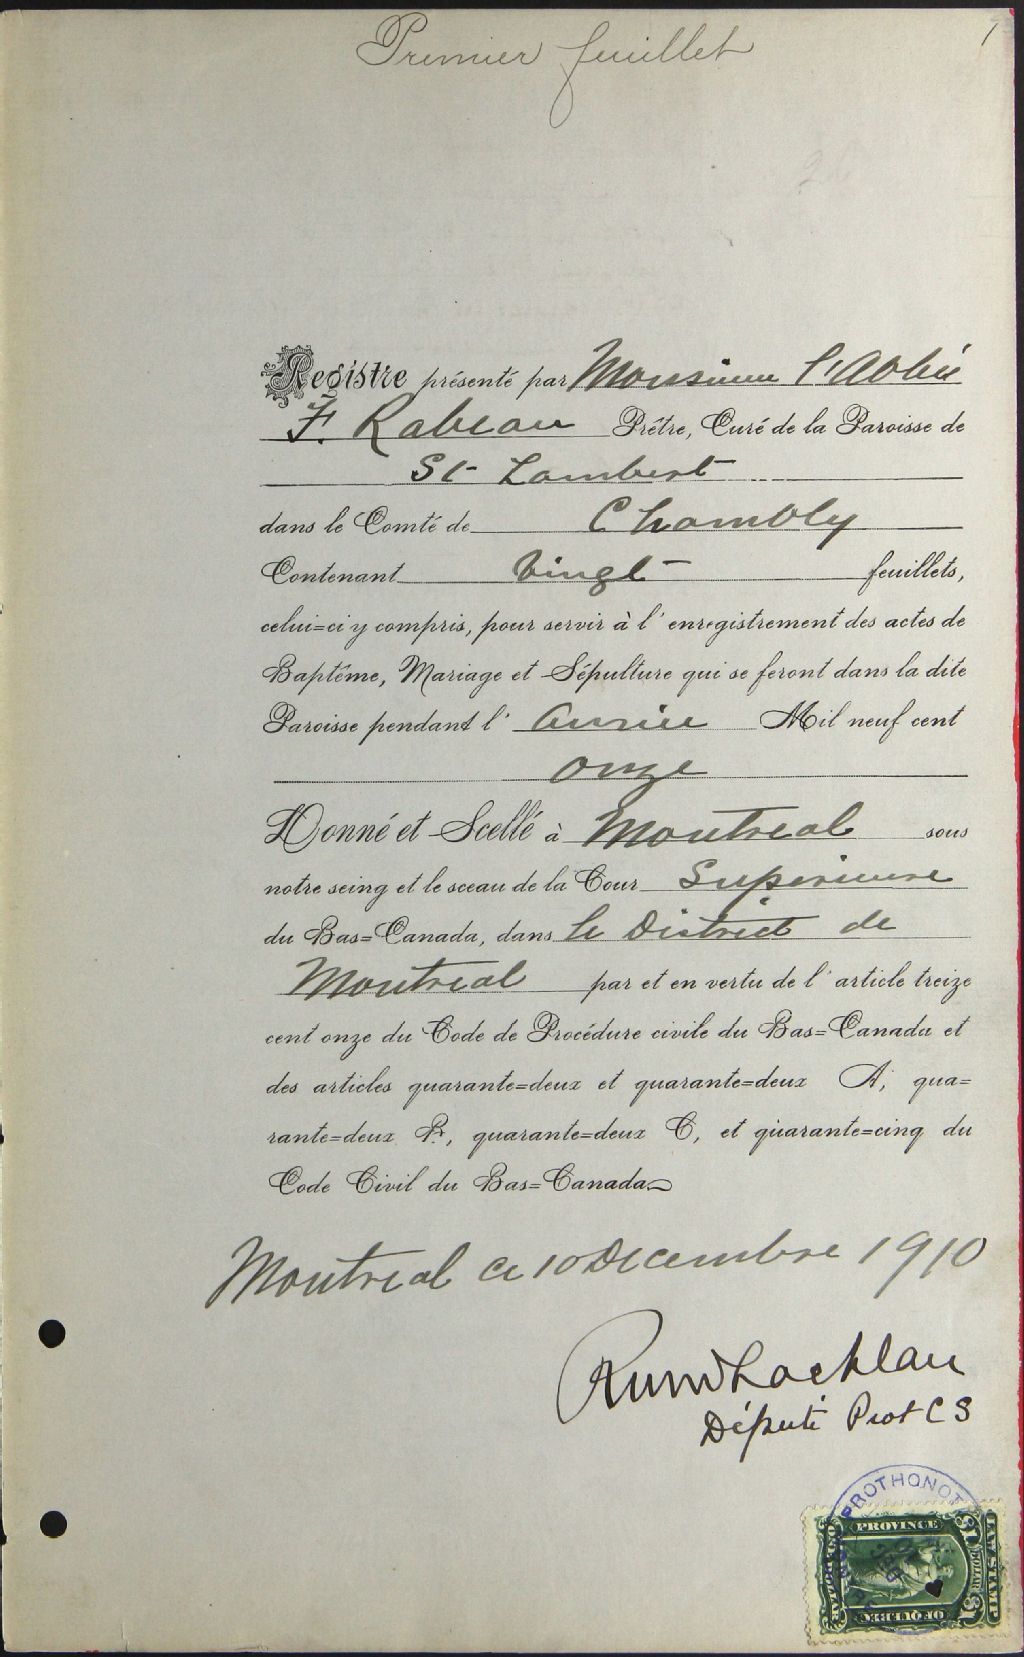 Premier feuillet
1
Registre présenté par Monsieur l'Abbé
F. Rabeau Prêtre, Curé de la Paroisse de
St Lambert
dans le Comté de Chambly
Contenant Vingt feuillets,
celui=ci y compris, pour servir à l'enregistrement des actes de
Baptême, Mariage et Sépulture qui se feront dans la dite
Paroisse pendant l'année Mil neuf cent
onze
Donné et Scellé à Montreal sous
notre seing et le sceau de la Cour Superieure
du Bas=Canada, dans le District de
Montreal par et en vertu de l'article treize
cent onze du Code de Procédure civile du Bas=Canada et
des articles quarante=deux et quarante=deux A, qua=
rante=deux B, quarante=deux C, et quarante=cinq du
Code Civil du Bas=Canada
Montreal ce 10 Decembre 1910
Député Prot C S
PROTHONOT
PROVINCE
OF QUEBEC
LAW STAMP
$1 DOLLAR $1
ONE DOLLAR